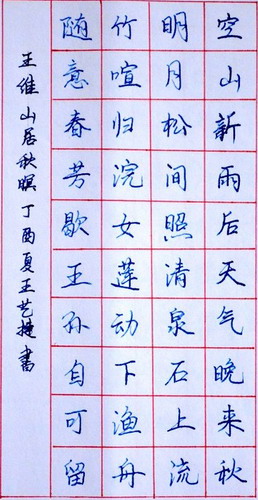 空山新雨后天气晚来秋
明月松间照清泉石上流
竹喧归浣女莲动下渔舟
随意春芳歇王孙自可留
王维山居秋暝丁酉夏王艺捷书